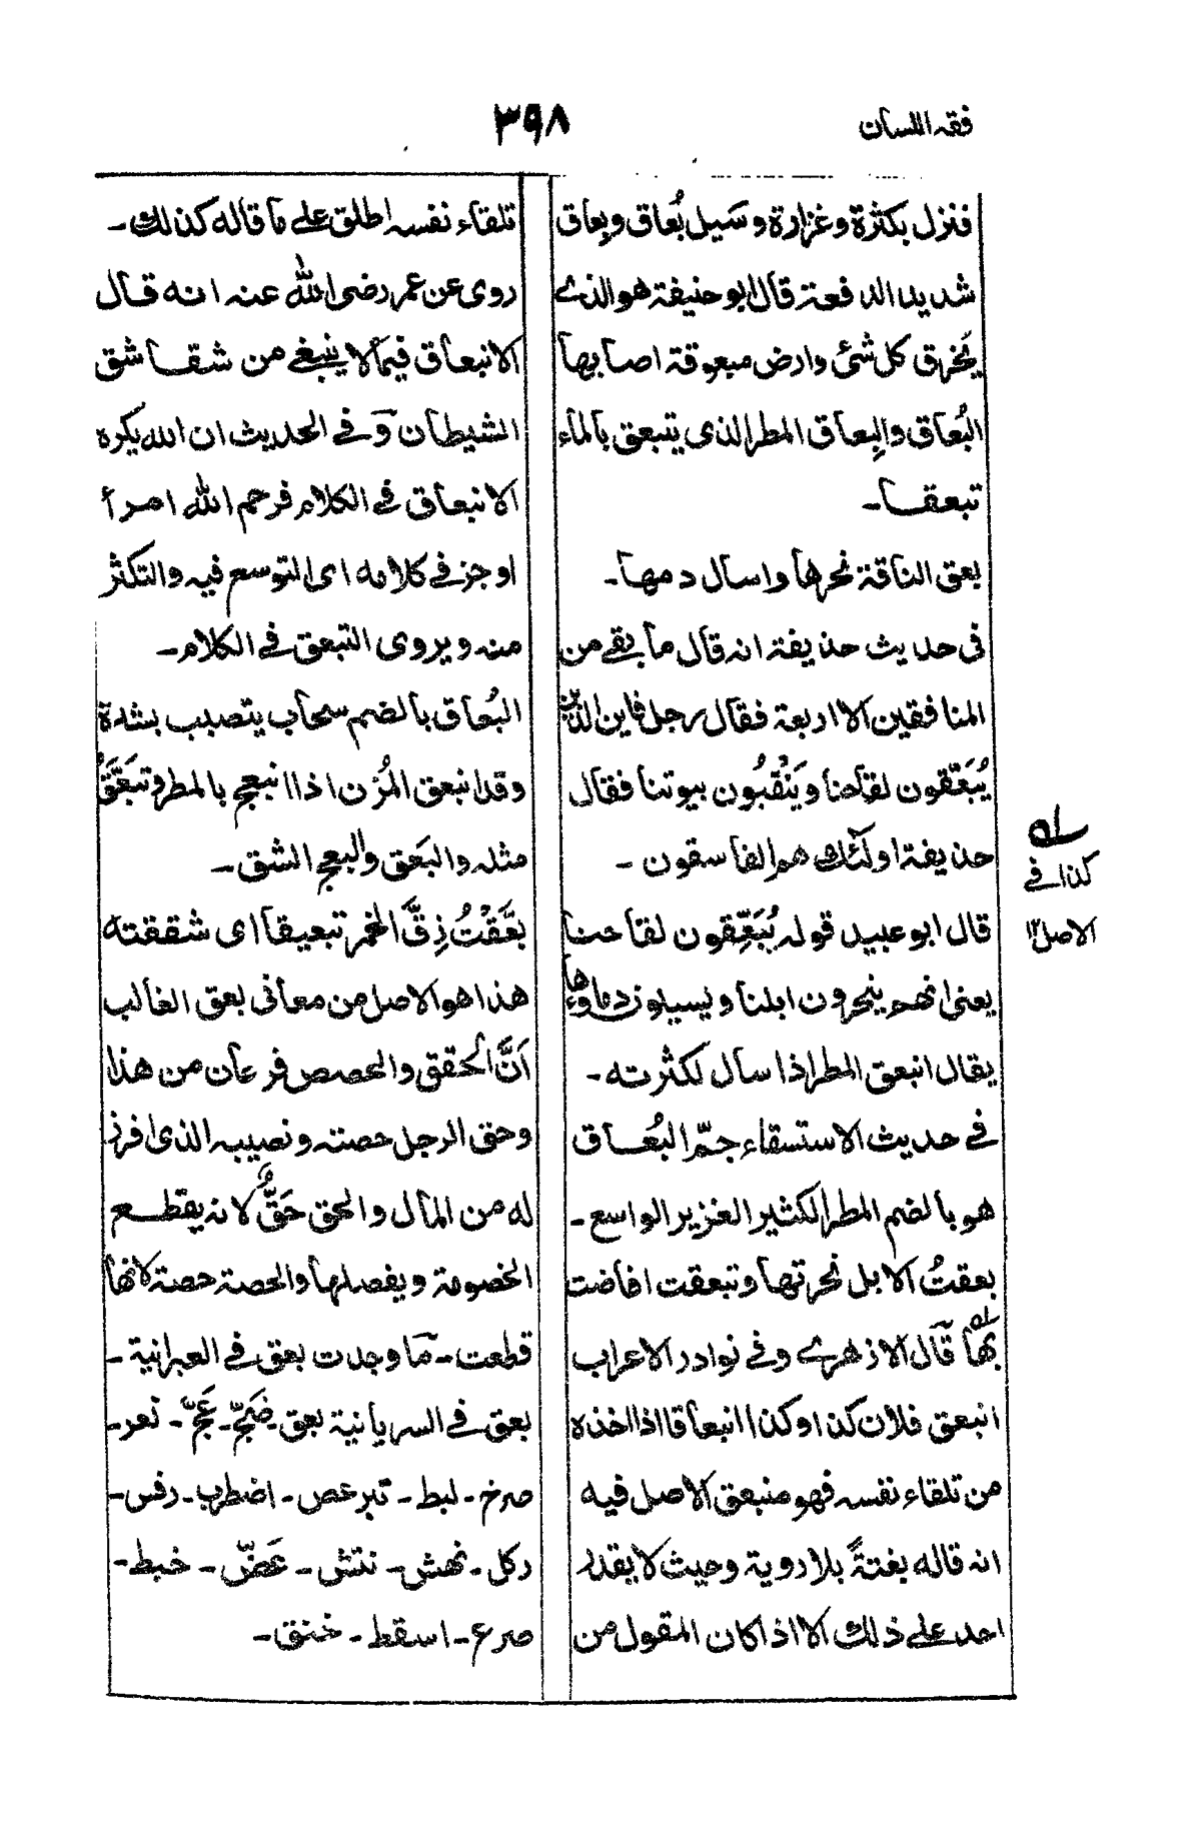 فقه اللسان
٣٩٨
فنزل بكثرة وغزارة وسَيل بُعاق وبِعاق
شديد الدفعة قال ابو حنيفة هو الذے
يَخرق كل شئ وارض مبعوقة اصابها
البُعاق والبِعاق المطر الذى يتبعق بالماء
تبعقا ـ
بعق الناقة نحرها واسال دمها ـ
فى حديث حذيفة انه قال ما بقے من
المنافقين الا اربعة فقال رجل فاين الذين
يُبَعّقون لقاحنا ويَنْقُبُون بيوتنا فقال
حذيفة اولٰئك هم الفاسقون ـ
قال ابو عبيد قوله يُبَعِّقون لقاحنا
يعنى انهم ينحرون ابلنا ويسيلون دماءها
يقال انبعق المطر اذا سال لكثرته ـ
فے حديث الاستسقاء جمّ البُعاق
هو بالضم المطر الكثير الغزير الواسع ـ
بعقتُ الابل نحرتها وتبعقت افاضت
بها قال الازهرے وفے نوادر الاعراب
انبعق فلان كذا وكذا انبعاقا اذا اخذه
من تلقاء نفسه فهو منبعق الاصل فيه
انه قاله بغتةً بلا روية وحيث لا يقدر
احد علے ذلك الا اذا كان المقول من
تلقاء نفسه اطلق علے ما قاله كذلك ـ
روى عن عمر رضى الله عنه انه قال
الانبعاق فيما لا ينبغے من شقاشق
الشيطان وفے الحديث ان الله يكره
الانبعاق فے الكلام فرحم الله امرأ
اوجز فے كلامه اى التوسع فيه والتكثر
منه ويروى التبعق فے الكلام ـ
البُعاق بالضم سحاب يتصبب بشدة
وقد انبعق المُزن اذا انبعج بالمطر وتَبَعَّقَ
مثله والبَعق والبعج الشق ـ
بعَّقْتُ زِقَّ الخمر تبعيقا اى شققته
هذا هو الاصل من معانى بعق الغالب
اَنَّ الحقق والحصص فرعان من هذا
وحق الرجل حصته ونصيبه الذى افرز
له من المال والحق حَقٌّ لانه يقطع
الخصومة ويفصلها والحصة حصة لانها
قطعت ـ ما وجدت بعق فے العبرانية ـ
بعق فے السريانية بعق ـ ضَجّ ـ عَجّ ـ نعر ـ
صرخ ـ لبط ـ تبرعص ـ اضطرب ـ رفس ـ
ركل ـ نهش ـ نتش ـ عَضّ ـ خبط ـ
صرع ـ اسقط ـ خنق ـ
كذا فے
الاصل ١٢